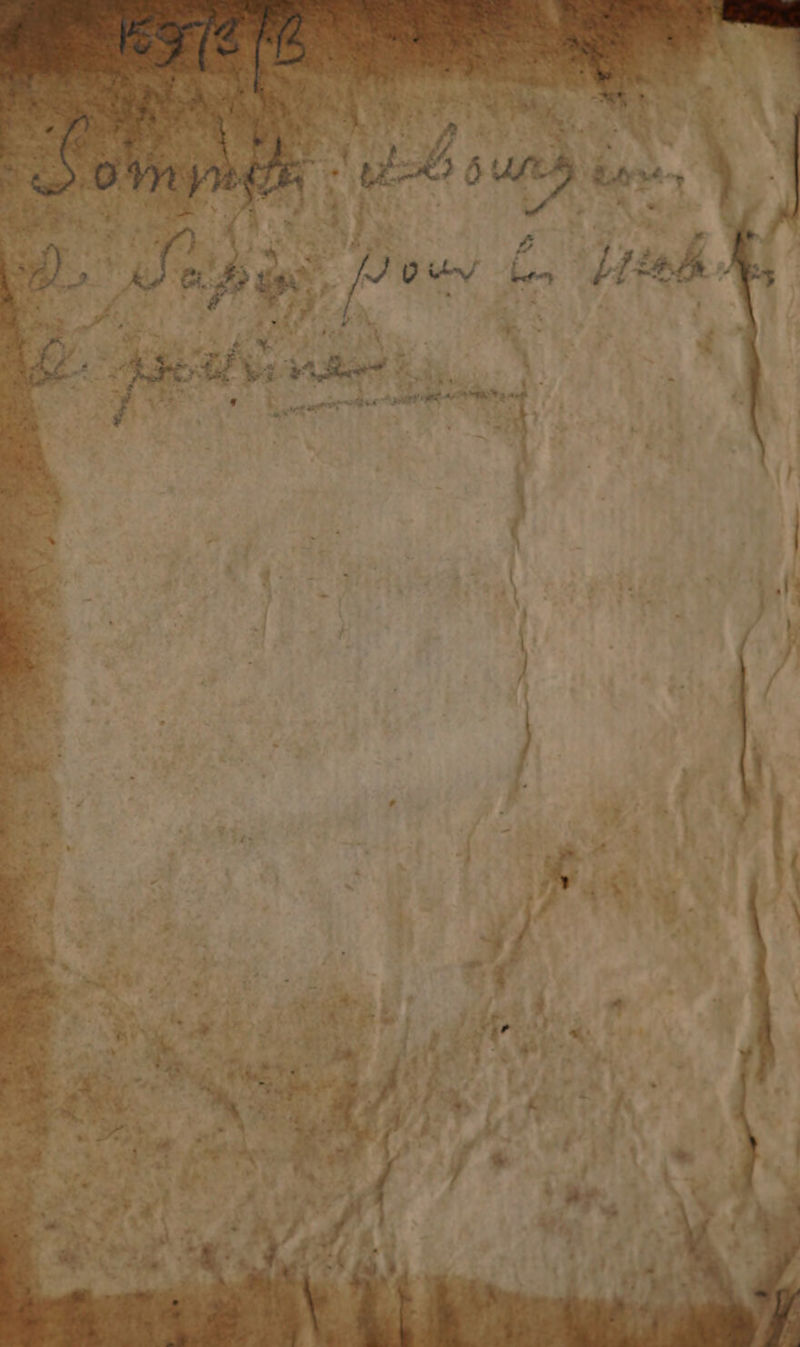 15973/B
Sommités et bourgeons
de Sapin pour les maladies
de poitrine